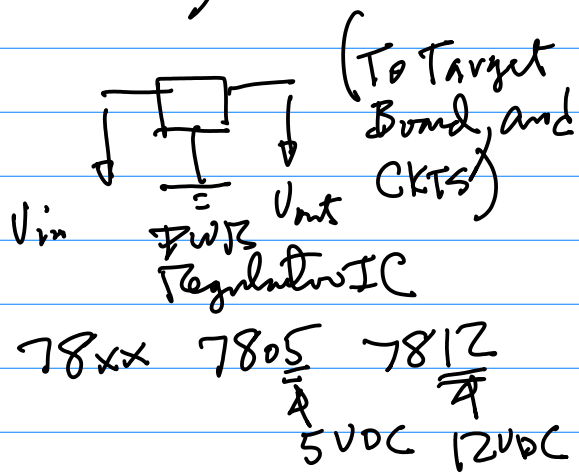 (To Target
Board, and
CKTS)
Vin
Vout
PWR
Regulator IC
78xx 7805 7812
5VDC 12VDC